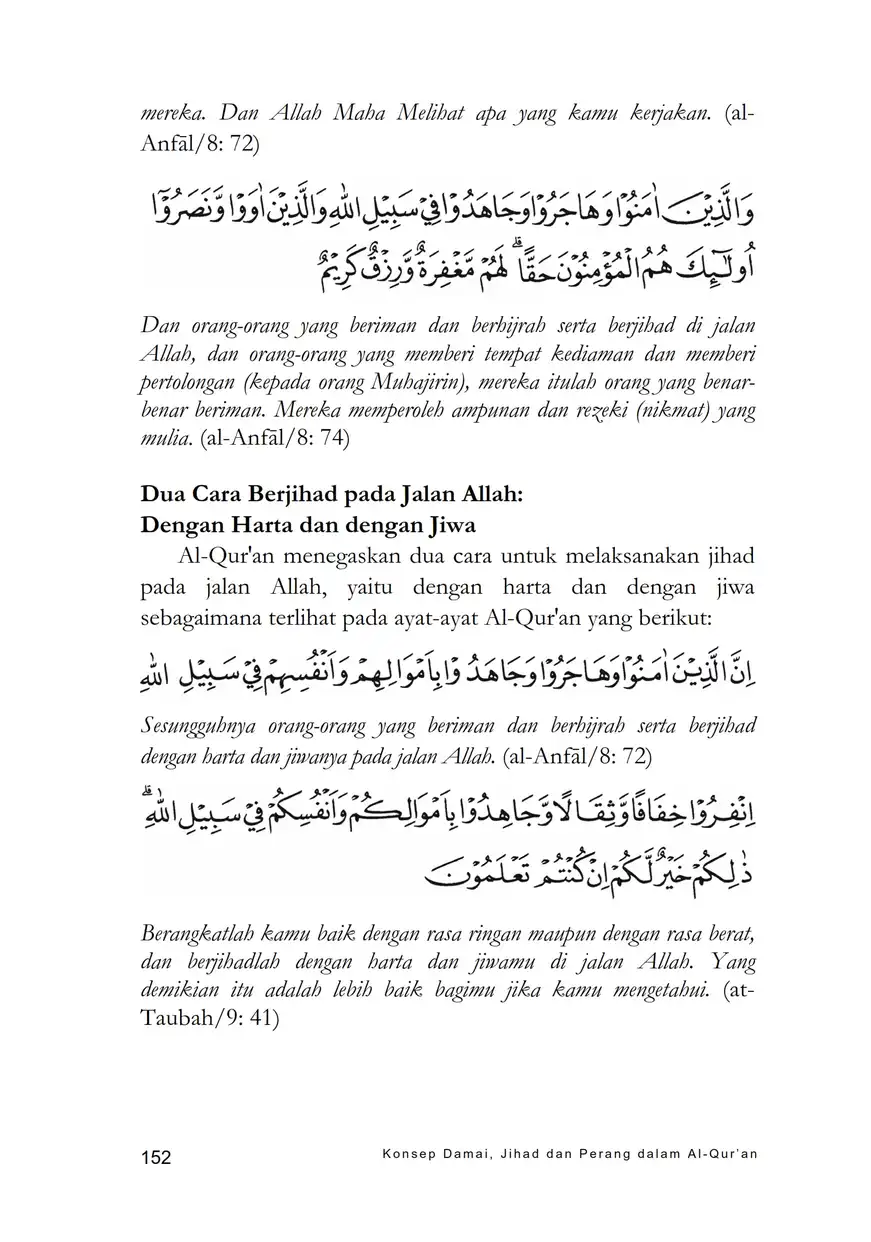 mereka. Dan Allah Maha Melihat apa yang kamu kerjakan. (al-
Anfāl/8: 72)
وَالَّذِيْنَ اٰمَنُوْا وَهَاجَرُوْا وَجَاهَدُوْا فِيْ سَبِيْلِ اللّٰهِ وَالَّذِيْنَ اٰوَوْا وَّنَصَرُوْٓا
اُولٰۤىِٕكَ هُمُ الْمُؤْمِنُوْنَ حَقًّاۗ لَهُمْ مَّغْفِرَةٌ وَّرِزْقٌ كَرِيْمٌ
Dan orang-orang yang beriman dan berhijrah serta berjihad di jalan
Allah, dan orang-orang yang memberi tempat kediaman dan memberi
pertolongan (kepada orang Muhajirin), mereka itulah orang yang benar-
benar beriman. Mereka memperoleh ampunan dan rezeki (nikmat) yang
mulia. (al-Anfāl/8: 74)
Dua Cara Berjihad pada Jalan Allah:
Dengan Harta dan dengan Jiwa
Al-Qur'an menegaskan dua cara untuk melaksanakan jihad
pada jalan Allah, yaitu dengan harta dan dengan jiwa
sebagaimana terlihat pada ayat-ayat Al-Qur'an yang berikut:
اِنَّ الَّذِيْنَ اٰمَنُوْا وَهَاجَرُوْا وَجَاهَدُوْا بِاَمْوَالِهِمْ وَاَنْفُسِهِمْ فِيْ سَبِيْلِ اللّٰهِ
Sesungguhnya orang-orang yang beriman dan berhijrah serta berjihad
dengan harta dan jiwanya pada jalan Allah. (al-Anfāl/8: 72)
اِنْفِرُوْا خِفَافًا وَّثِقَالًا وَّجَاهِدُوْا بِاَمْوَالِكُمْ وَاَنْفُسِكُمْ فِيْ سَبِيْلِ اللّٰهِۗ
ذٰلِكُمْ خَيْرٌ لَّكُمْ اِنْ كُنْتُمْ تَعْلَمُوْنَ
Berangkatlah kamu baik dengan rasa ringan maupun dengan rasa berat,
dan berjihadlah dengan harta dan jiwamu di jalan Allah. Yang
demikian itu adalah lebih baik bagimu jika kamu mengetahui. (at-
Taubah/9: 41)
152 Konsep Damai, Jihad dan Perang dalam Al-Qur’an